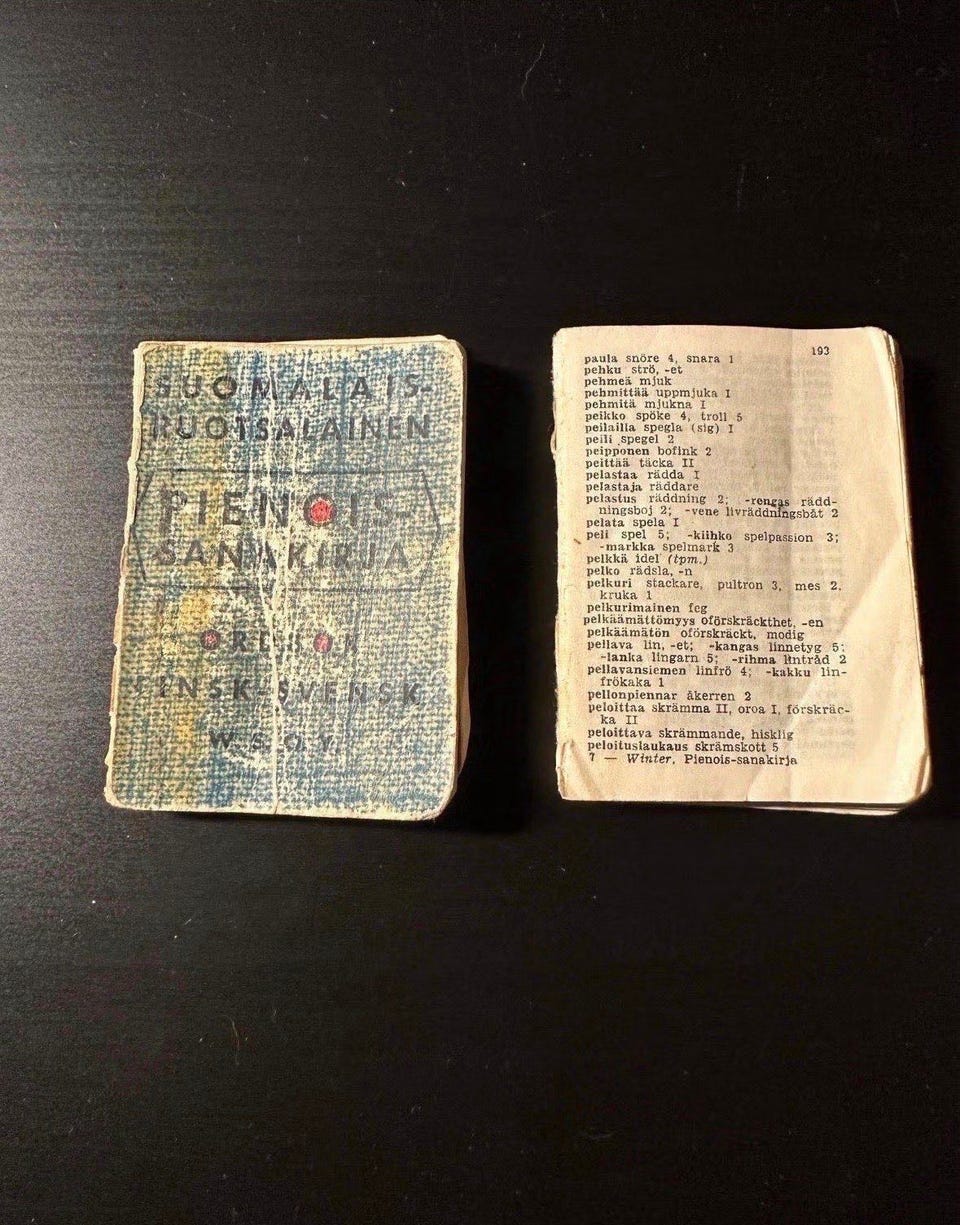 SUOMALAIS-
RUOTSALAINEN
PIENOIS-
SANAKIRJA
ORDBOK
FINSK-SVENSK
W.S.O.Y.
193
paula snöre 4, snara 1
pehku strö, -et
pehmeä mjuk
pehmittää uppmjuka I
pehmitä mjukna I
peikko spöke 4, troll 5
peilailla spegla (sig) I
peili spegel 2
peipponen bofink 2
peittää täcka II
pelastaa rädda I
pelastaja räddare
pelastus räddning 2; -rengas rädd-
ningsboj 2; -vene livräddningsbåt 2
pelata spela I
peli spel 5; -kiihko spelpassion 3;
-markka spelmark 3
pelkkä idel (tpm.)
pelko rädsla, -n
pelkuri stackare, pultron 3, mes 2,
kruka 1
pelkurimainen feg
pelkäämättömyys oförskräckthet, -en
pelkäämätön oförskräckt, modig
pellava lin, -et; -kangas linnetyg 5;
-lanka lingarn 5; -rihma lintråd 2
pellavansiemen linfrö 4; -kakku lin-
frökaka 1
pellonpiennar åkerren 2
peloittaa skrämma II, oroa I, förskräc-
ka II
peloittava skrämmande, hisklig
peloituslaukaus skrämskott 5
7 — Winter, Pienois-sanakirja